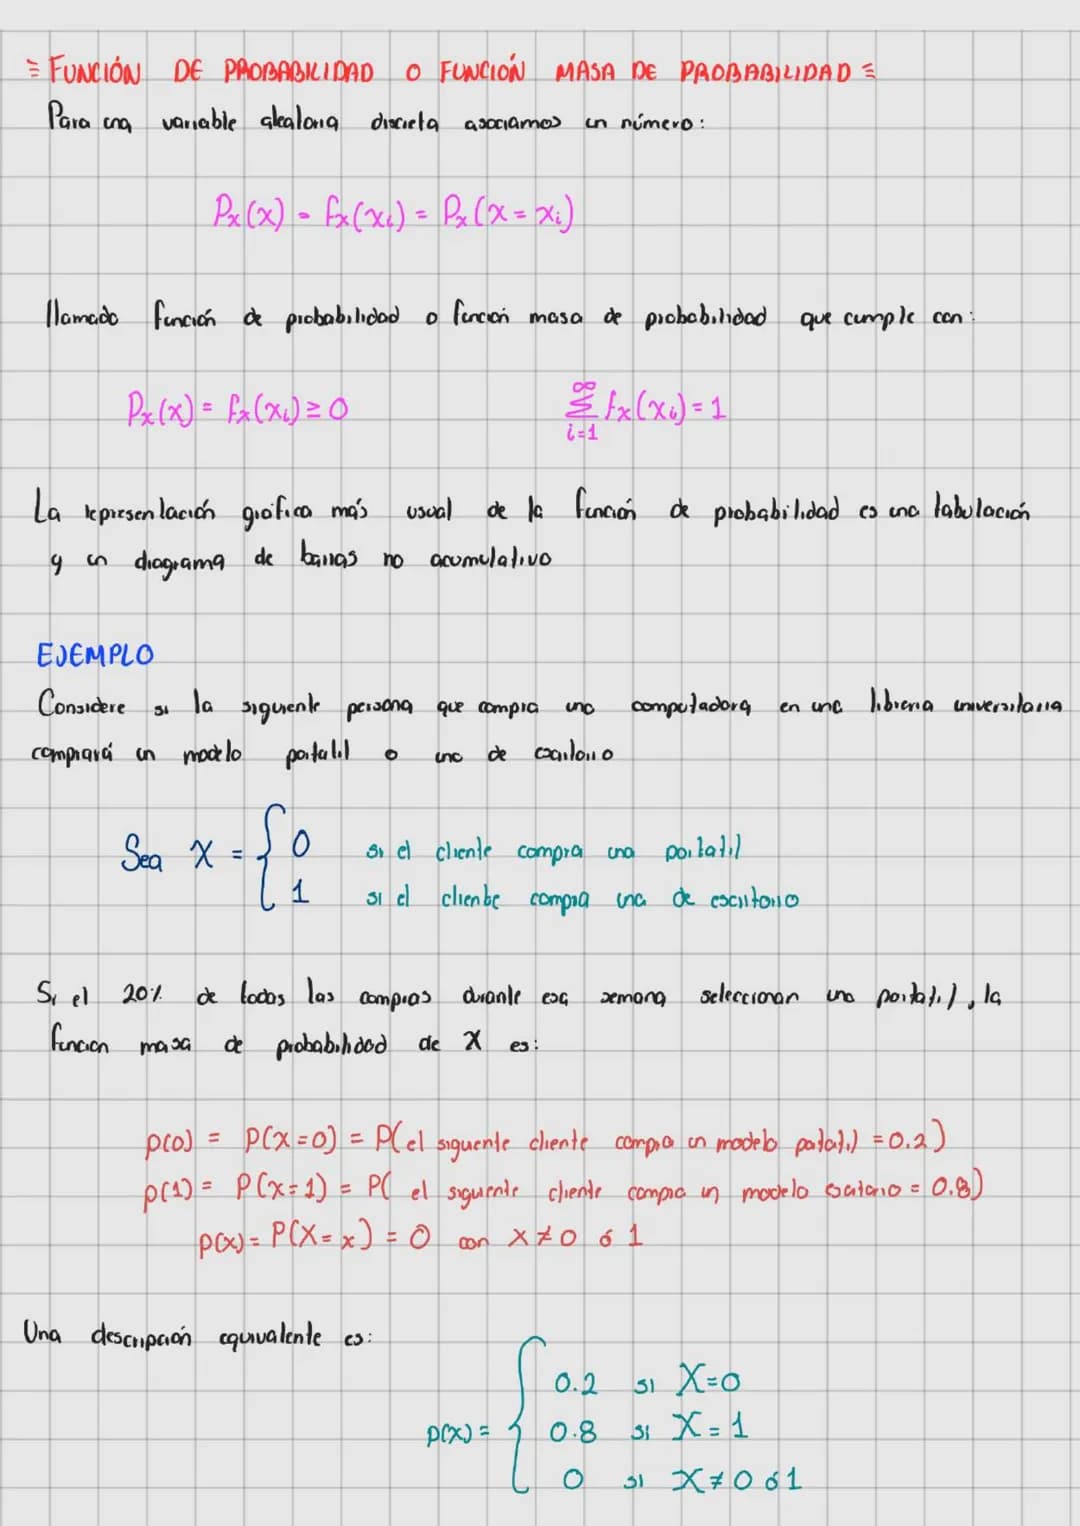 ≡ FUNCIÓN DE PROBABILIDAD O FUNCIÓN MASA DE PROBABILIDAD ≡
Para una variable aleatoria discreta asociamos un número:
Px(x) = fx(xi) = Px(x = xi)
llamado función de probabilidad o función masa de probabilidad que cumple con:
Px(x) = fx(xi) ≥ 0    ∞ Σ i=1 fx(xi) = 1
La representación gráfica más usual de la función de probabilidad es una tabulación
y un diagrama de barras no acumulativo
EJEMPLO
Considere si la siguiente persona que compra una computadora en una libreria universitaria
comprará un modelo portatil o uno de escritorio
Sea X = { 0 si el cliente compra una portatil
1 si el cliente compra una de escritorio
Si el 20% de todas las compras durante esa semana seleccionan una portatil, la
funcion masa de probabilidad de X es:
p(0) = P(X=0) = P(el siguiente cliente compra un modelo portatil = 0.2)
p(1) = P(X=1) = P( el siguiente cliente compra un modelo escritorio = 0.8)
p(x) = P(X=x) = 0 con X≠0 ó 1
Una descripción equivalente es:
p(x) = { 0.2 si X=0
0.8 si X=1
0 si X≠0 ó 1